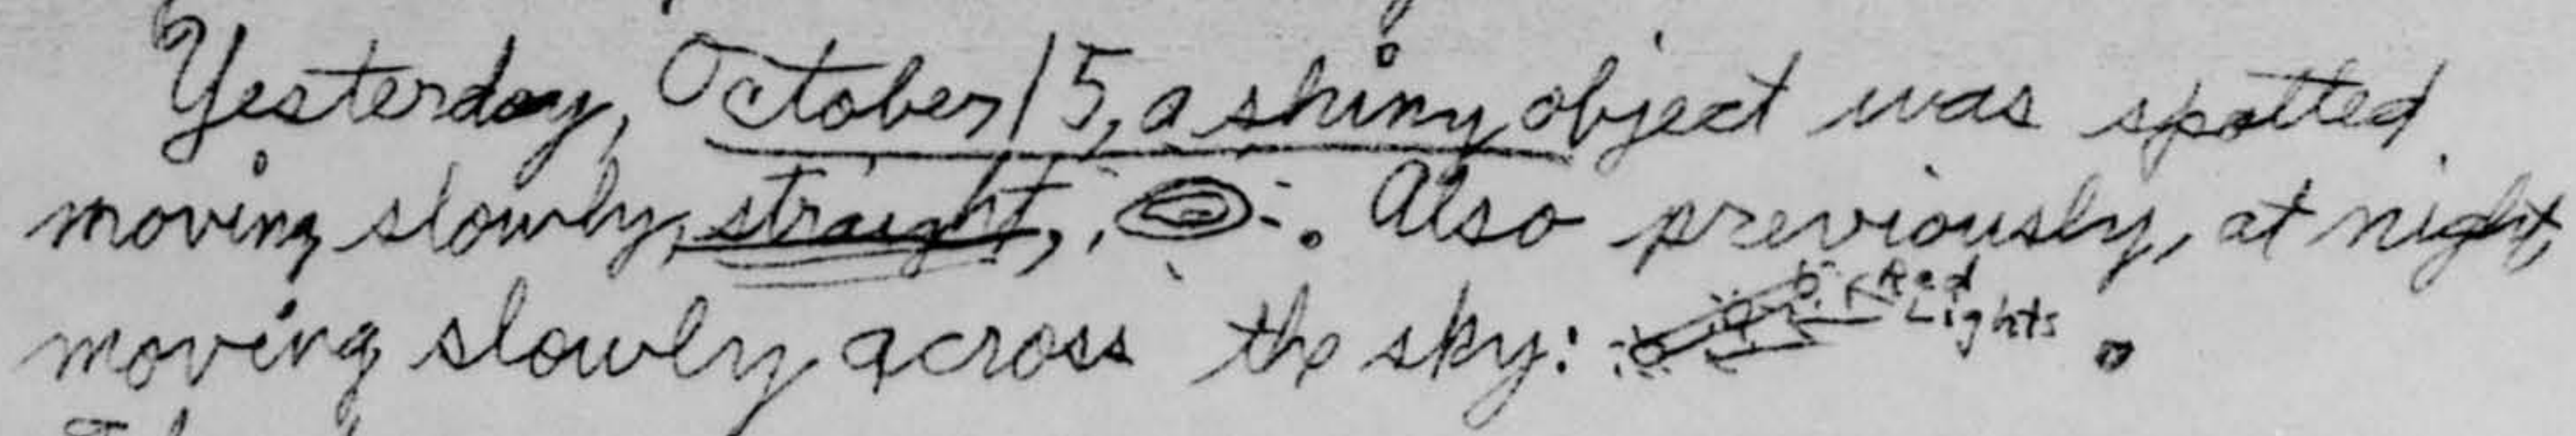 Yesterday, October 15, a shiny object was spotted
moving slowly, straight, , . Also previously, at night,
moving slowly across the sky: Red Lights .